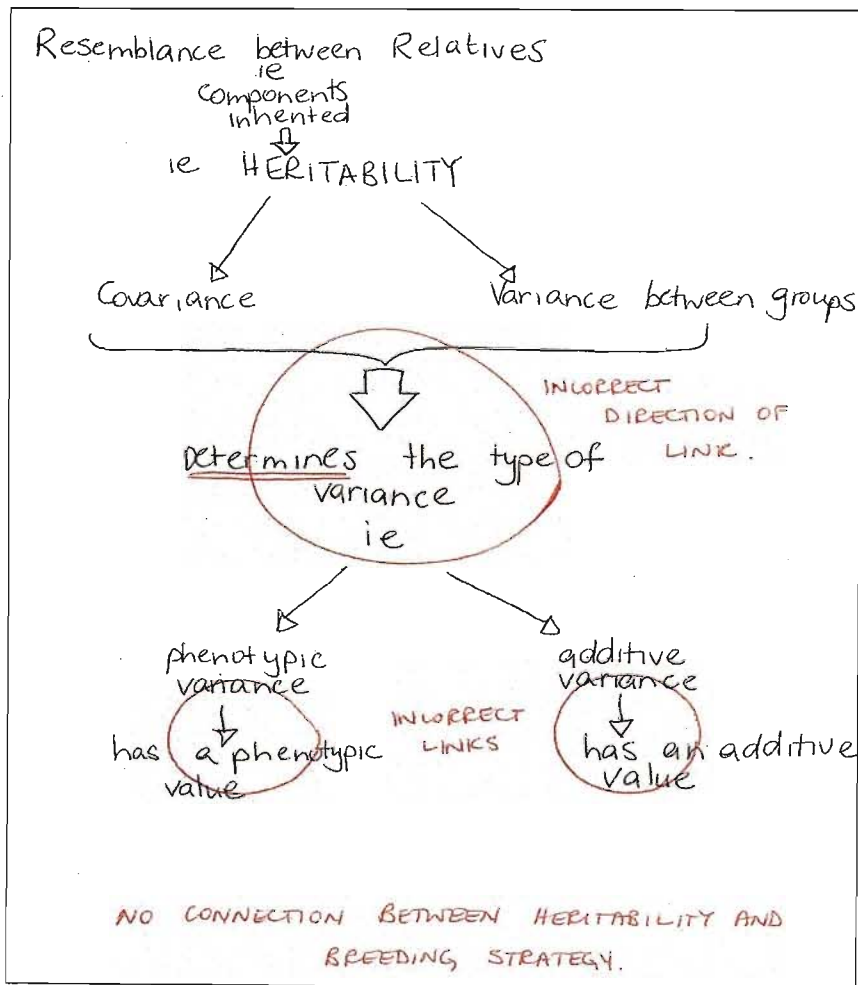 Resemblance between Relatives
ie
components
inherited
ie HERITABILITY
Covariance
Variance between groups
INCORRECT
DIRECTION OF
LINK.
Determines the type of
variance
ie
phenotypic
variance
has a phenotypic
value
INCORRECT
LINKS
additive
variance
has an additive
value
NO CONNECTION BETWEEN HERITABILITY AND
BREEDING STRATEGY.